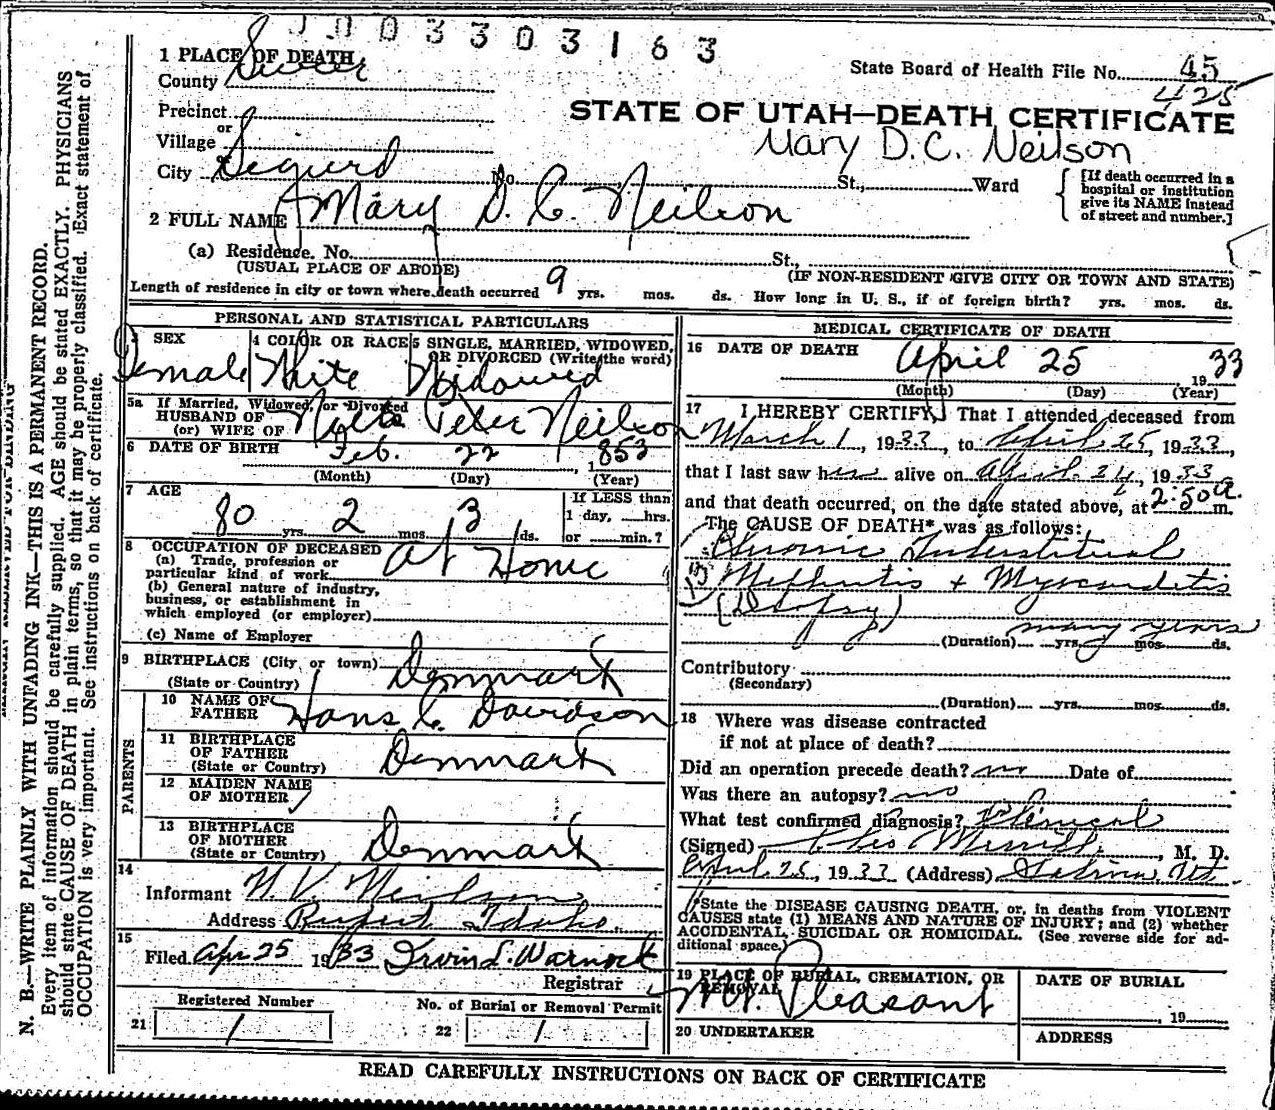 003303163
1 PLACE OF DEATH
County Sevier
State Board of Health File No. 45
425
Precinct
or
Village
STATE OF UTAH—DEATH CERTIFICATE
Mary D.C. Neilson
City Sigurd No. St., Ward
[If death occurred in a hospital or institution give its NAME instead of street and number.]
2 FULL NAME Mary D. C. Neilson
(a) Residence. No. St.,
(USUAL PLACE OF ABODE) (IF NON-RESIDENT GIVE CITY OR TOWN AND STATE)
Length of residence in city or town where death occurred 9 yrs. mos. ds. How long in U. S., if of foreign birth? yrs. mos. ds.
PERSONAL AND STATISTICAL PARTICULARS
3 SEX 4 COLOR OR RACE 5 SINGLE, MARRIED, WIDOWED, OR DIVORCED (Write the word)
Female White Widowed
5a If Married, Widowed, or Divorced
HUSBAND OF
(or) WIFE OF Peter Neilson
6 DATE OF BIRTH Feb. 22, 1853
(Month) (Day) (Year)
7 AGE
80 yrs. 2 mos. 3 ds.
If LESS than 1 day, hrs. or min.?
8 OCCUPATION OF DECEASED At Home
(a) Trade, profession or particular kind of work
(b) General nature of industry, business, or establishment in which employed (or employer)
(c) Name of Employer
9 BIRTHPLACE (City or town) Denmark
(State or Country)
PARENTS
10 NAME OF FATHER Hans C. Davidson
11 BIRTHPLACE OF FATHER (State or Country) Denmark
12 MAIDEN NAME OF MOTHER
13 BIRTHPLACE OF MOTHER (State or Country) Denmark
14
Informant N. V. Neilson
Address Rupert Idaho
15
Filed Apr 25 1933 Irvin L. Warnock
Registrar
Registered Number No. of Burial or Removal Permit
21 1 22 1
MEDICAL CERTIFICATE OF DEATH
16 DATE OF DEATH April 25 1933
(Month) (Day) (Year)
17 I HEREBY CERTIFY, That I attended deceased from
March 1, 1933, to April 25, 1933,
that I last saw her alive on April 24, 1933
and that death occurred, on the date stated above, at 2:50 a. m.
The CAUSE OF DEATH* was as follows:
Chronic Interstitual
Nephritis + Myocarditis
(Dropsy)
(Duration) many years yrs. mos. ds.
Contributory
(Secondary)
(Duration) yrs. mos. ds.
18 Where was disease contracted
if not at place of death?
Did an operation precede death? no Date of
Was there an autopsy? no
What test confirmed diagnosis? Clinical
(Signed) Merrill, M. D.
April 25, 1933 (Address) Salina, Ut.
*State the DISEASE CAUSING DEATH, or, in deaths from VIOLENT
CAUSES state (1) MEANS AND NATURE OF INJURY; and (2) whether
ACCIDENTAL, SUICIDAL OR HOMICIDAL. (See reverse side for ad-
ditional space.)
19 PLACE OF BURIAL, CREMATION, OR REMOVAL
Mt. Pleasant
DATE OF BURIAL
, 19
20 UNDERTAKER
ADDRESS
READ CAREFULLY INSTRUCTIONS ON BACK OF CERTIFICATE
N. B.—WRITE PLAINLY WITH UNFADING INK—THIS IS A PERMANENT RECORD.
Every item of information should be carefully supplied. AGE should be stated EXACTLY. PHYSICIANS
should state CAUSE OF DEATH in plain terms, so that it may be properly classified. Exact statement of
OCCUPATION is very important. See instructions on back of certificate.